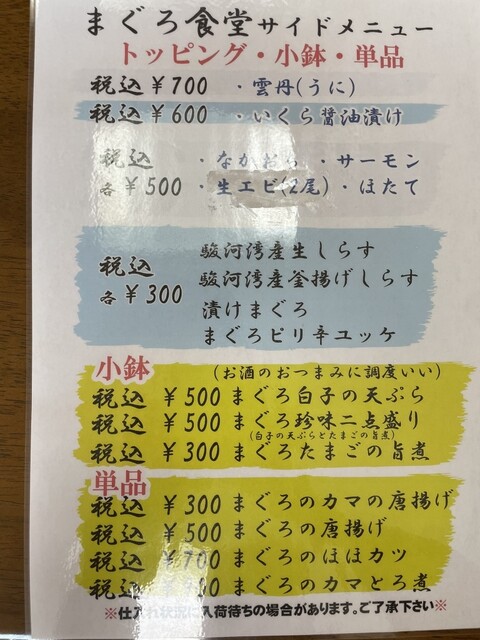 まぐろ食堂サイドメニュー
トッピング・小鉢・単品
税込 ¥700 ・雲丹(うに)
税込 ¥600 ・いくら醤油漬け
税込 ・なかおち ・サーモン
各¥500 ・生エビ(2尾)・ほたて
駿河湾産生しらす
税込 駿河湾産釜揚げしらす
各¥300 漬けまぐろ
まぐろピリ辛ユッケ
小鉢 (お酒のおつまみに調度いい)
税込 ¥500 まぐろ白子の天ぷら
税込 ¥500 まぐろ珍味二点盛り
(白子の天ぷらとたまごの旨煮)
税込 ¥300 まぐろたまごの旨煮
単品
税込 ¥300 まぐろのカマの唐揚げ
税込 ¥500 まぐろの唐揚げ
税込 ¥700 まぐろのほほカツ
税込 まぐろのカマとろ煮
※仕入れ状況に入荷待ちの場合があります。ご了承下さい※